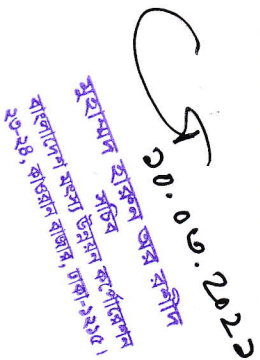 ১০.০৩.২০২১
মুহাম্মদ হারুন অর রশীদ
সচিব
বাংলাদেশ মৎস্য উন্নয়ন কর্পোরেশন
২৩-২৪, কাওরান বাজার, ঢাকা-১২১৫।